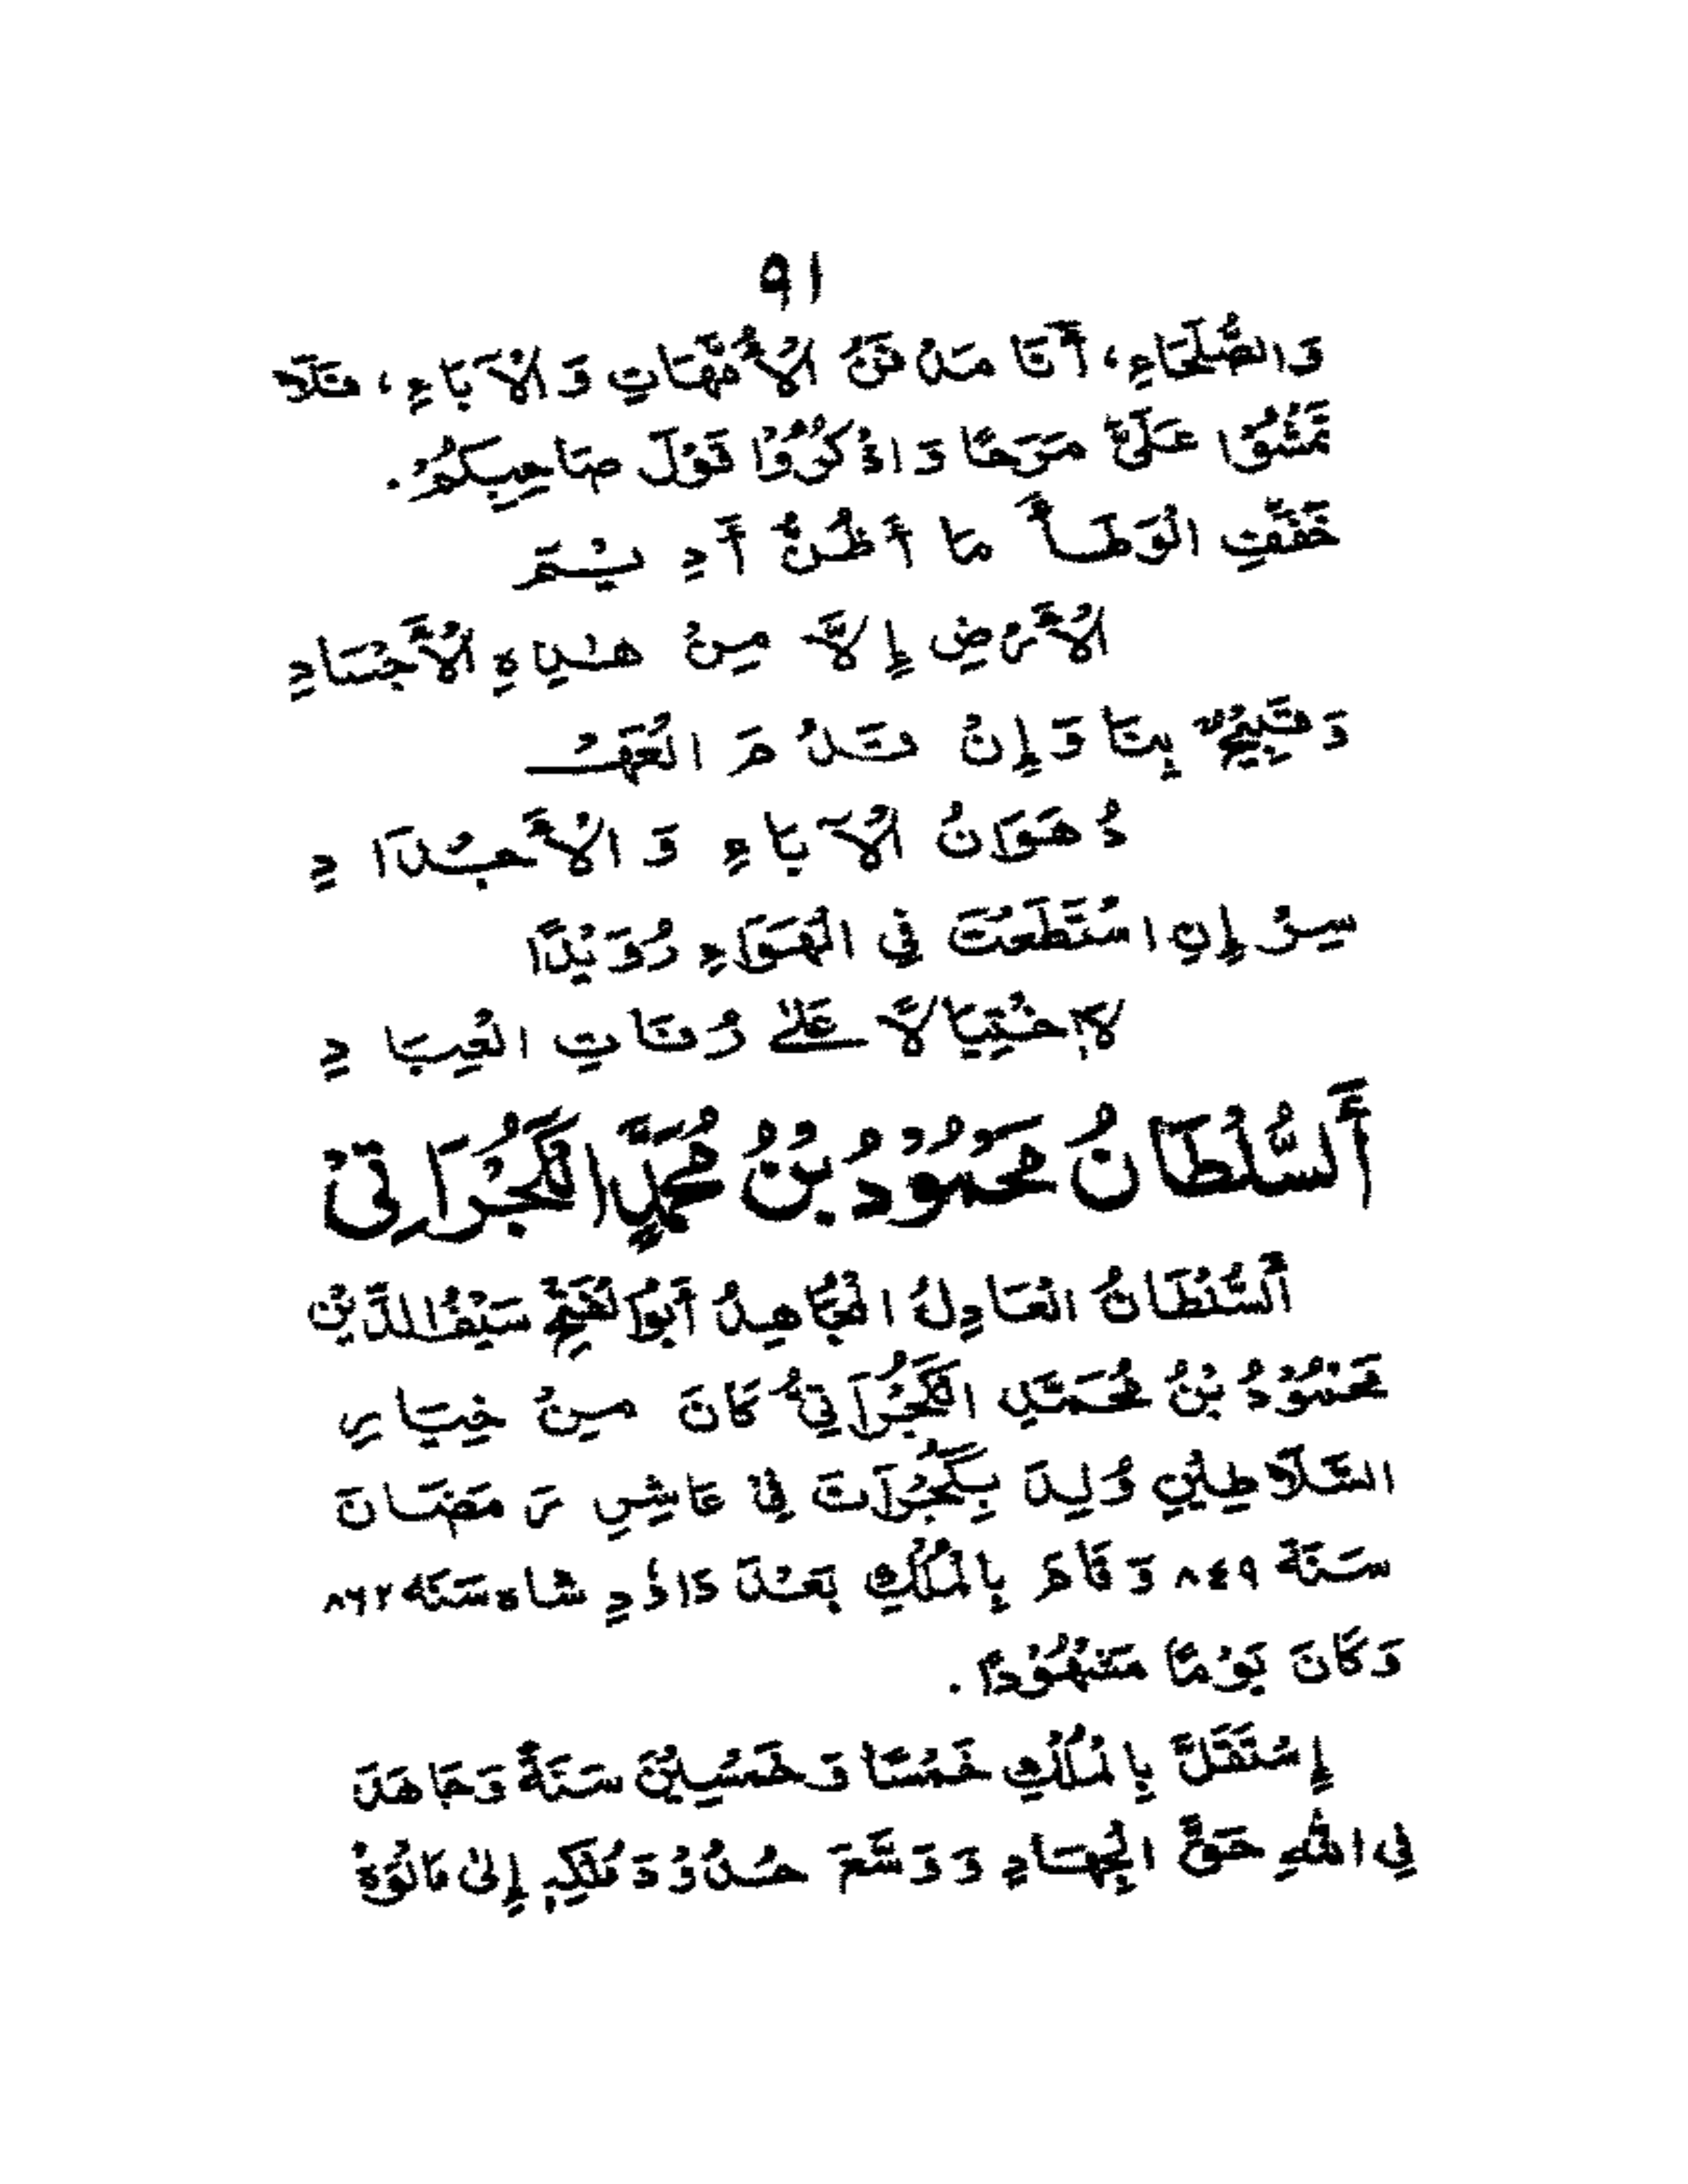 ٩١
وَالصُّلَحَاءِ، أَنَا مَدْفَنُ الْأُمَّهَاتِ وَالْآبَاءِ، فَلَا
تَمْشُوْا عَلَيَّ مَرَحًا وَاذْكُرُوْا قَوْلَ صَاحِبِكُمْ.
خَفِّفِ الْوَطْأَ مَا أَظُنُّ أَدِيْمَ
الْأَرْضِ إِلَّا مِنْ هٰذِهِ الْأَجْسَادِ
وَقَبِيْحٌ بِنَا وَإِنْ قَدُمَ الْعَهْـ
دُ هَوَانُ الْآبَاءِ وَالْأَجْدَادِ
سِرْ إِنِ اسْتَطَعْتَ فِي الْهَوَاءِ رُوَيْدًا
لَا خْتِيَالًا عَلٰى رُفَاتِ الْعِبَادِ
أَلسُّلْطَانُ مَحْمُوْدُ بْنُ مُحَمَّدٍ الْكُجْرَاتِيْ
أَلسُّلْطَانُ الْعَادِلُ الْمُجَاهِدُ أَبُوالْفَتْحِ سَيْفُ الدِّيْنِ
مَحْمُوْدُ بْنُ مُحَمَّدٍ الْكُجْرَاتِيُّ كَانَ مِنْ خِيَارِ
السَّلَاطِيْنِ وُلِدَ بِكُجْرَاتَ فِيْ عَاشِرِ رَمَضَانَ
سَنَةَ ٨٤٩ وَقَامَ بِالْمُلْكِ بَعْدَ دَاؤُدِ شَاه سَنَةَ ٨٦٢
وَكَانَ يَوْمًا مَشْهُوْدًا.
إِسْتَقَلَّ بِالْمُلْكِ خَمْسًا وَخَمْسِيْنَ سَنَةً وَجَاهَدَ
فِي اللّٰهِ حَقَّ الْجِهَادِ وَوَسَّعَ حُدُوْدَ مُلْكِهٖ إِلٰى مَالْوَهْ